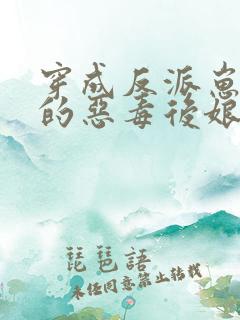 穿成反派崽
的惡毒後娘
琵琶語
未经同意禁止转载